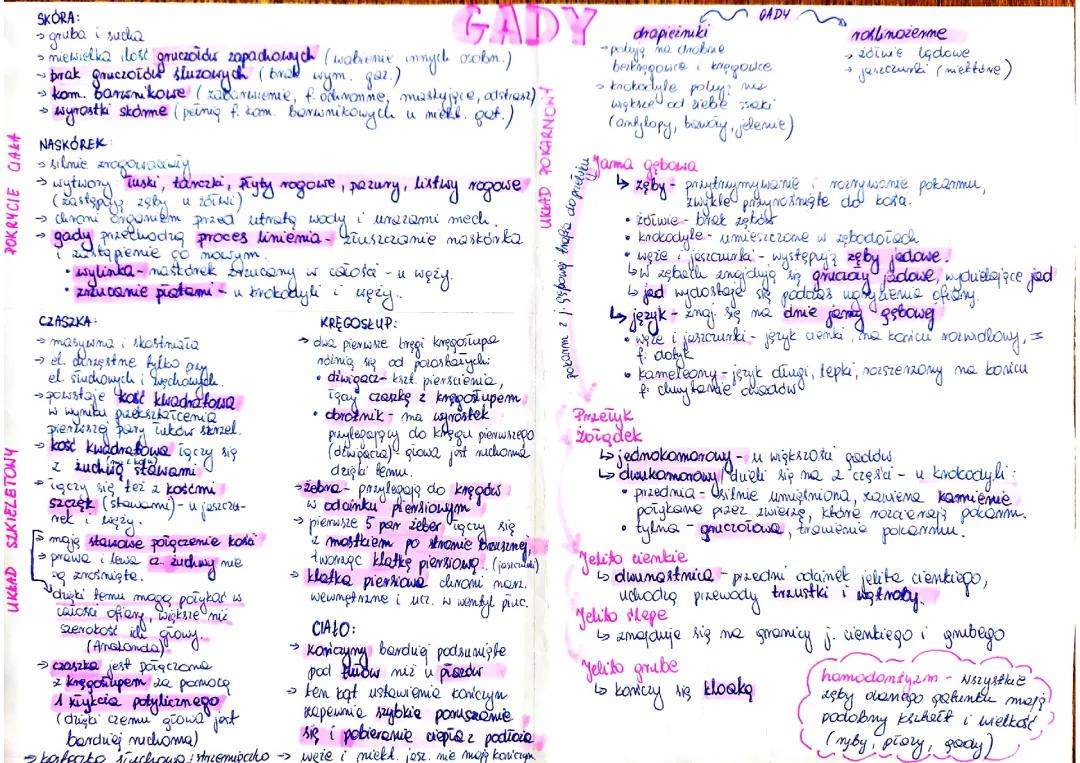 GADY
POKRYCIE CIAŁA
SKÓRA:
→ gruba i sucha
→ niewielka ilość gruczołów zapachowych (wabienie innych osobn.)
→ brak gruczołów śluzowych (brak wym. gaz.)
→ kom. barwnikowe (zabarwienie, f. ochronne, maskujące, odstrasz)
→ wyrostki skórne (pełnią f. kom. barwnikowych u niekt. gat.)
NASKÓREK:
→ silnie zrogowaciały
→ wytwory: łuski, tarczki, płyty rogowe, pazury, listwy rogowe
(zastępują zęby u żółwi)
→ chroni organizm przed utratą wody i urazami mech.
→ gady przechodzą proces linienia - złuszczanie naskórka
i zastąpienie go nowym.
• wylinka - naskórek zrzucany w całości - u węży.
• zrzucanie płatami - u krokodyli i węży.
UKŁAD SZKIELETOWY
CZASZKA:
→ masywna i skostniała
→ el. chrzęstne tylko przy
el. słuchowych i węchowych.
→ powstaje kość kwadratowa
w wyniku przekształcenia
pierwszej pary łuków skrzel.
→ kość kwadratowa łączy się
z żuchwą stawami
→ łączy się też z kośćmi
szczęk (stawami) - u jaszczu-
rek i węży.
→ mają stawowe połączenie kości
→ prawa i lewa cz. żuchwy nie
są zrośnięte.
dzięki temu mogą połykać w
całości ofiary, większe niż
szerokość ich głowy.
(Anakonda)
→ czaszka jest połączona
z kręgosłupem za pomocą
1 kłykcia potylicznego
(dzięki czemu głowa jest
bardziej ruchoma)
→ kosteczka słuchowa: strzemiączko
KRĘGOSŁUP:
→ dwa pierwsze kręgi kręgosłupa
różnią się od pozostałych:
• dźwigacz - kszt. pierścienia,
łączy czaszkę z kręgosłupem
• obrotnik - ma wyrostek
przylegający do kręgu pierwszego
(dźwigacza) głowa jest ruchoma
dzięki temu.
→ żebra - przylegają do kręgów
w odcinku piersiowym
→ pierwsze 5 par żeber łączy się
z mostkiem po stronie brzusznej,
tworząc klatkę piersiową. (jaszczurki)
→ klatka piersiowa chroni narz.
wewnętrzne i ucz. w wentyl płuc.
CIAŁO:
→ kończyny bardziej podsunięte
pod tułów niż u płazów
→ ten kąt ustawienia kończyn
zapewnia szybkie poruszanie
się i pobieranie ciepła z podłoża
→ węże i niekt. jasz. nie mają kończyn
UKŁAD POKARMOWY
GADY
drapieżniki
→ polują na drobne
bezkręgowce i kręgowce
→ krokodyle polują na
większe od siebie ssaki
(antylopy, bawoły, jelenie)
roślinożerne
→ żółwie lądowe
→ jaszczurki (niektóre)
pokarm z j. gębowej trafia do przełyku
Jama gębowa
↳ zęby - przytrzymywanie i rozrywanie pokarmu,
zwykle przyrośnięte do kości.
• żółwie - brak zębów
• krokodyle - umieszczone w zębodołach
• węże i jaszczurki - występują zęby jadowe.
↳ w zębach znajdują się gruczoły jadowe, wydzielające jad
↳ jad wydostaje się podczas ugryzienia ofiary.
↳ język - znaj. się na dnie jamy gębowej
• węże i jaszczurki - język cienki, na końcu rozwidlony, =
f. dotyk
• kameleony - język długi, lepki, rozszerzony na końcu
f. chwytanie owadów
Przełyk
Żołądek
↳ jednokomorowy - u większości gadów
↳ dwukomorowy/dzieli się na 2 części - u krokodyli:
• przednia - silnie umięśniona, zawiera kamienie
połykane przez zwierzę, które rozcierają pokarm.
• tylna - gruczołowa, trawienie pokarmu.
Jelito cienkie
↳ dwunastnica - przedni odcinek jelita cienkiego,
uchodzą przewody trzustki i wątroby.
Jelito ślepe
↳ znajduje się na granicy j. cienkiego i grubego
Jelito grube
↳ kończy się kloaką
homodontyzm - wszystkie
zęby danego gatunku mają
podobny kształt i wielkość
(ryby, płazy, gady)